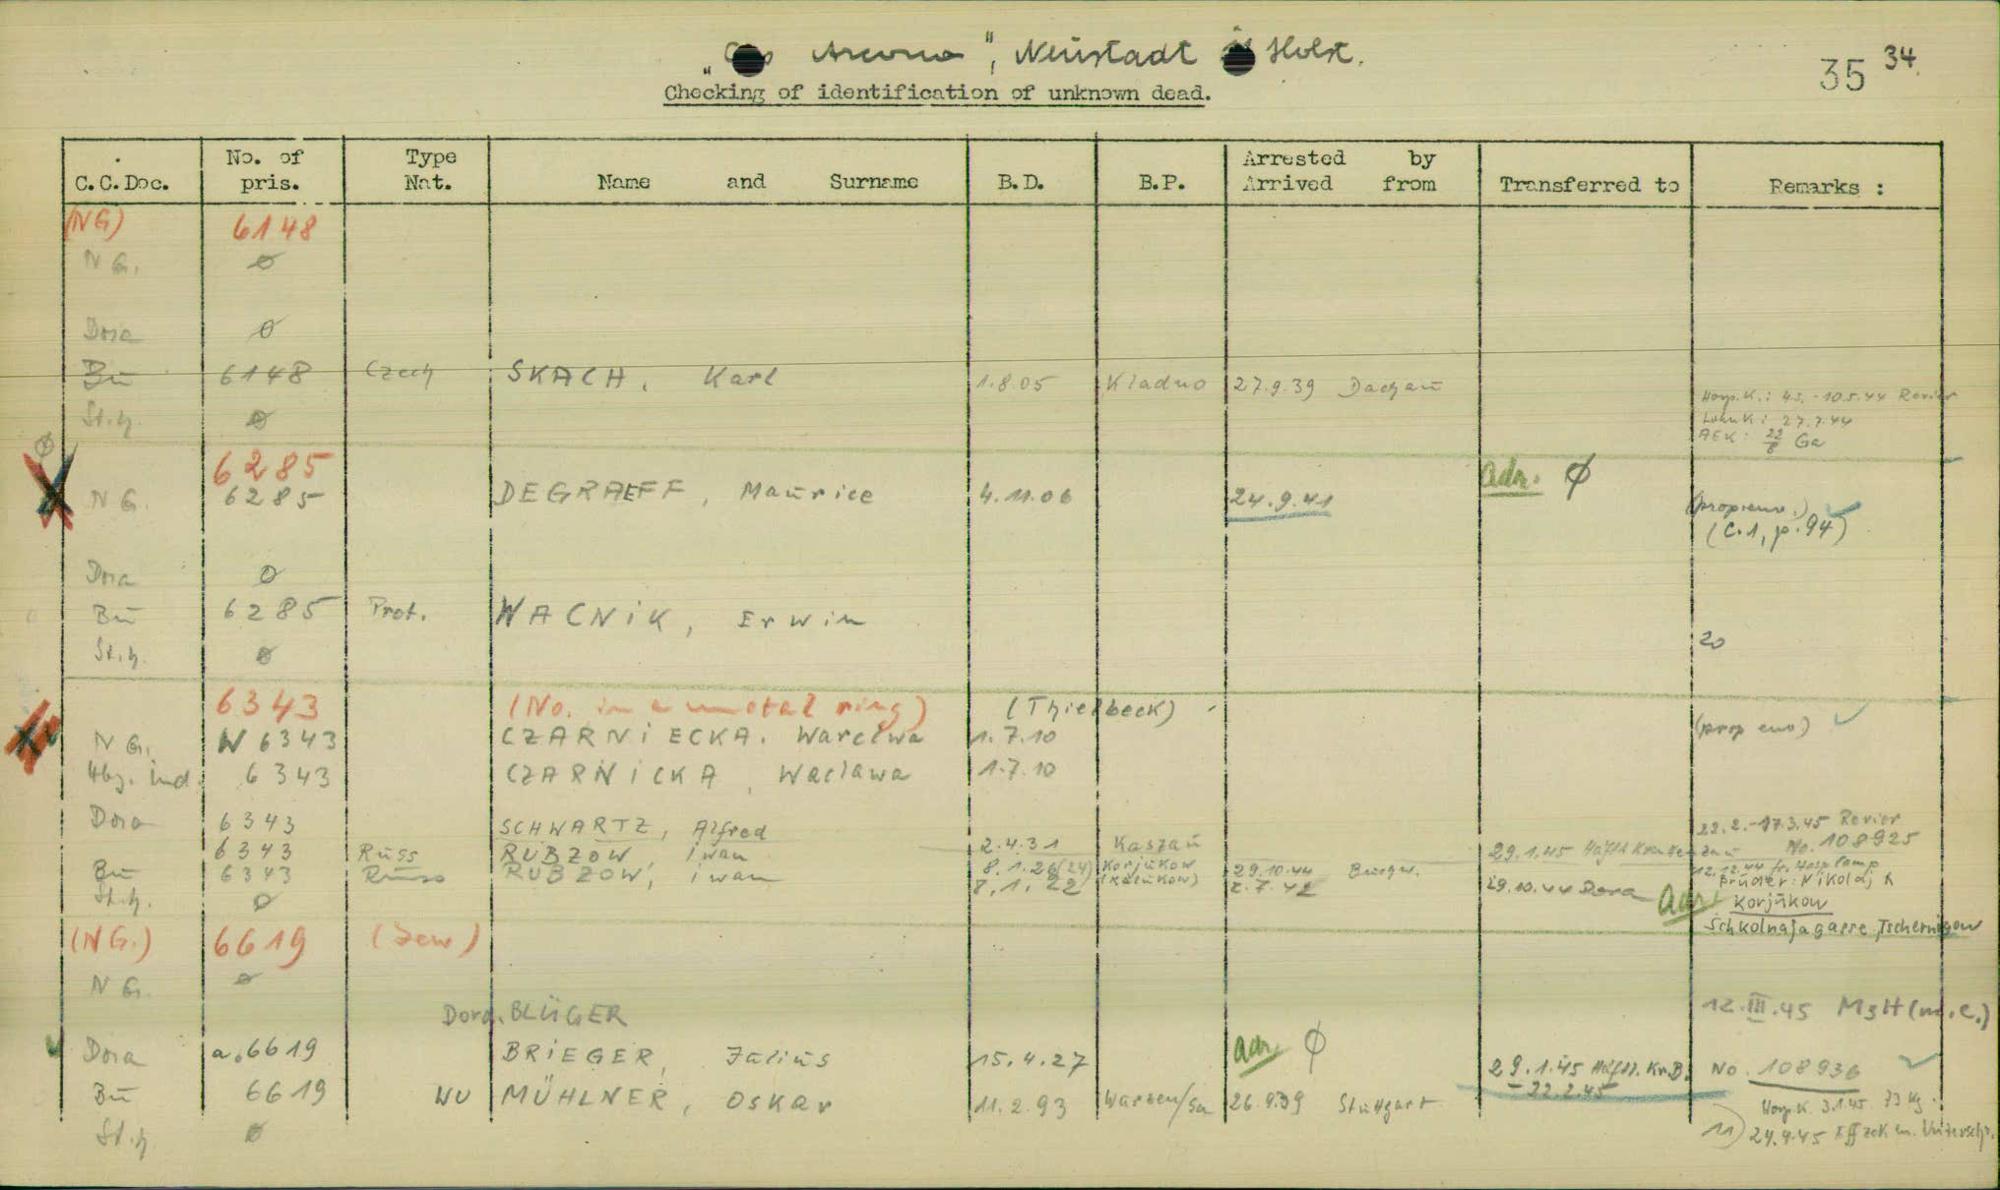 "Cap Arcona", Neustadt i/ Holst.
35 34
Checking of identification of unknown dead.
C.C.Doc. No. of pris. Type Nat. Name and Surname B.D. B.P. Arrested by Arrived from Transferred to Remarks :
(NG) 6148
NG. ø
Dora ø
Bu 6148 Czech SKACH, Karl 1.8.05 Kladno 27.9.39 Dachau
Hosp.K.: 4.5.-10.5.44 Revier
St.h. ø
27.7.44
AEK: 22/8 Ga
ø
6285 adr. ø
NG. 6285 DEGRAEFF, Maurice 4.11.06 24.9.41 (prop.env.)
(C.1, p.94)
Dora ø
Bu 6285 Prot. WACNIK, Erwin
20
St.h. ø
6343 (No. in a metal ring) (Thielbeck)
(prop env)
NG. W 6343 CZARNIECKA. Warclwa 1.7.10
Hbg. ind. 6343 CZARNICKA, Waclawa 1.7.10
Dora 6343 SCHWARTZ, Alfred 2.4.31 Kaszau 29.1.45 22.2.-17.3.45 Revier
No. 108925
6343 Russ RUBZOW, iwan 8.1.26(24) Korjukow 29.10.44 Buchw.
Bu 6343 Russ RUBZOW, iwan 8.1.22 (Kalukow) 2.7.42 29.10.44 Dora Bruder: Nikolaj R
St.h. ø adr. Korjukow
Schkolnajagasse, Tschernigow
(NG.) 6619 (Jew)
NG. ø
Dora. BLÜGER 12.III.45 MgH (m.c.)
Dora a.6619 BRIEGER, Julius 15.4.27 adr. ø 29.1.45 Häftl. Kr.B. No. 108936
-22.2.45
Bu 6619 WU MÜHLNER, Oskar 11.2.93 26.9.39 Stuttgart
Hosp.K. 3.1.45 73 Kg.
St.h. ø
11) 24.4.45 m. Unterschr.